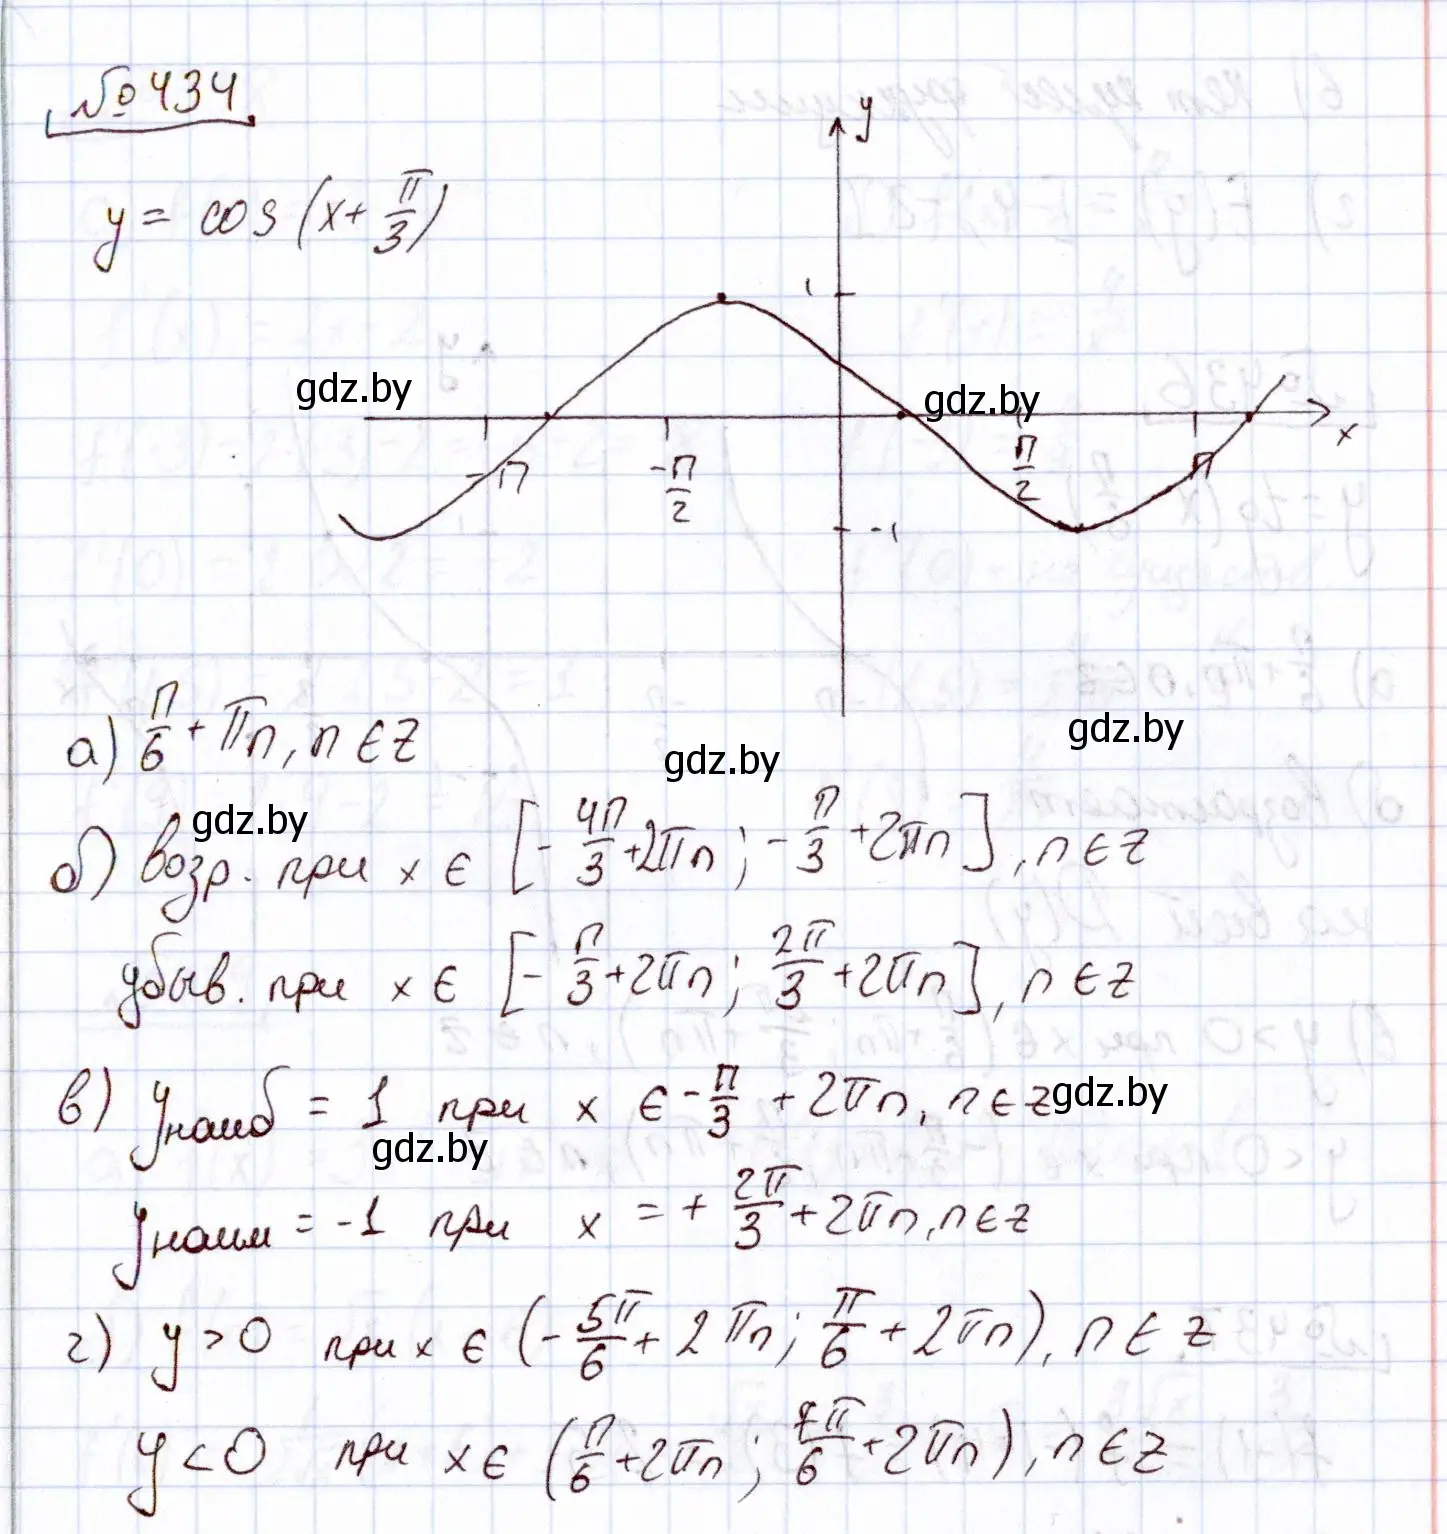 №434
y = cos (x + π/3)
y
1
gdz.by
gdz.by
x
-π
-π/2
π/2
π
-1
а) π/6 + πn, n ∈ Z
gdz.by
gdz.by
gdz.by
б) возр. при x ∈ [- 4π/3 + 2πn ; - π/3 + 2πn], n ∈ Z
убыв. при x ∈ [- π/3 + 2πn ; 2π/3 + 2πn], n ∈ Z
в) yнаиб = 1 при x ∈ - π/3 + 2πn, n ∈ Z gdz.by
gdz.by
yнаим = -1 при x = + 2π/3 + 2πn, n ∈ Z
г) y > 0 при x ∈ (- 5π/6 + 2πn ; π/6 + 2πn), n ∈ Z
y < 0 при x ∈ (π/6 + 2πn ; 7π/6 + 2πn), n ∈ Z